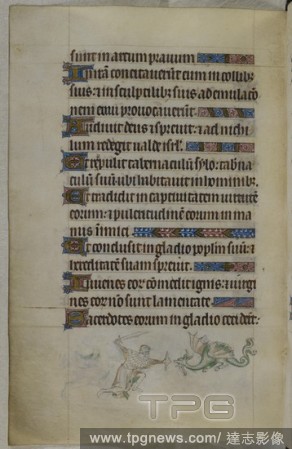 sunt in arcum prauum
In irā concitauerūt eum in collibꝫ
suis: ⁊ in sculptilibꝫ suis ad emulacō
nem eum prouocauerūt.
Audiuit deus ⁊ spreuit: ⁊ ad nichi
lum redegit ualde isrl.
Et repulit tab̄naculū sylo: tab̄na
culū suū ubi habitauit in hominibꝫ.
Et tradidit in captiuitatem uirtutē
eorum: ⁊ pulcritudinē eorum in ma
nus inimici.
Et conclusit in gladio pop̄lm suū: ⁊
hereditatē suam spreuit.
Iuuenes eorꝫ comedit ignis: ⁊ uirgi
nes eorꝫ nō sunt lamentate.
Sacerdotes eorum in gladio cecider̄t:
TPG
www.tpgnews.com / 達志影像